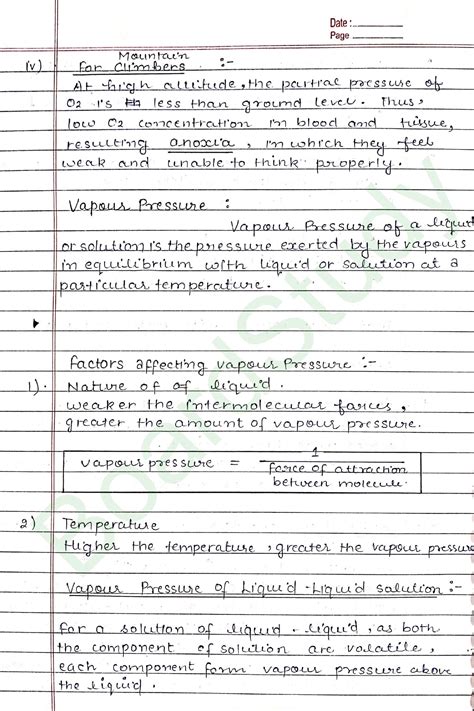 Date :
Page
Mountain
(v) For Climbers :-
At high altitude, the partial pressure of
O2 is less than ground level. Thus,
low O2 concentration in blood and tissue,
resulting anoxia, in which they feel
weak and unable to think properly.
Vapour Pressure :
Vapour Pressure of a liquid
or solution is the pressure exerted by the vapours
in equilibrium with liquid or solution at a
particular temperature.
Factors affecting vapour Pressure :-
1). Nature of of liquid.
weaker the intermolecular forces,
greater the amount of vapour pressure.
vapour pressure = 1
force of attraction
between molecule.
2) Temperature
Higher the temperature, greater the vapour pressure
Vapour Pressure of Liquid - Liquid solution :-
For a solution of liquid - liquid, as both
the component of solution are volatile,
each component form vapour pressure above
the liquid.
BoardStudy